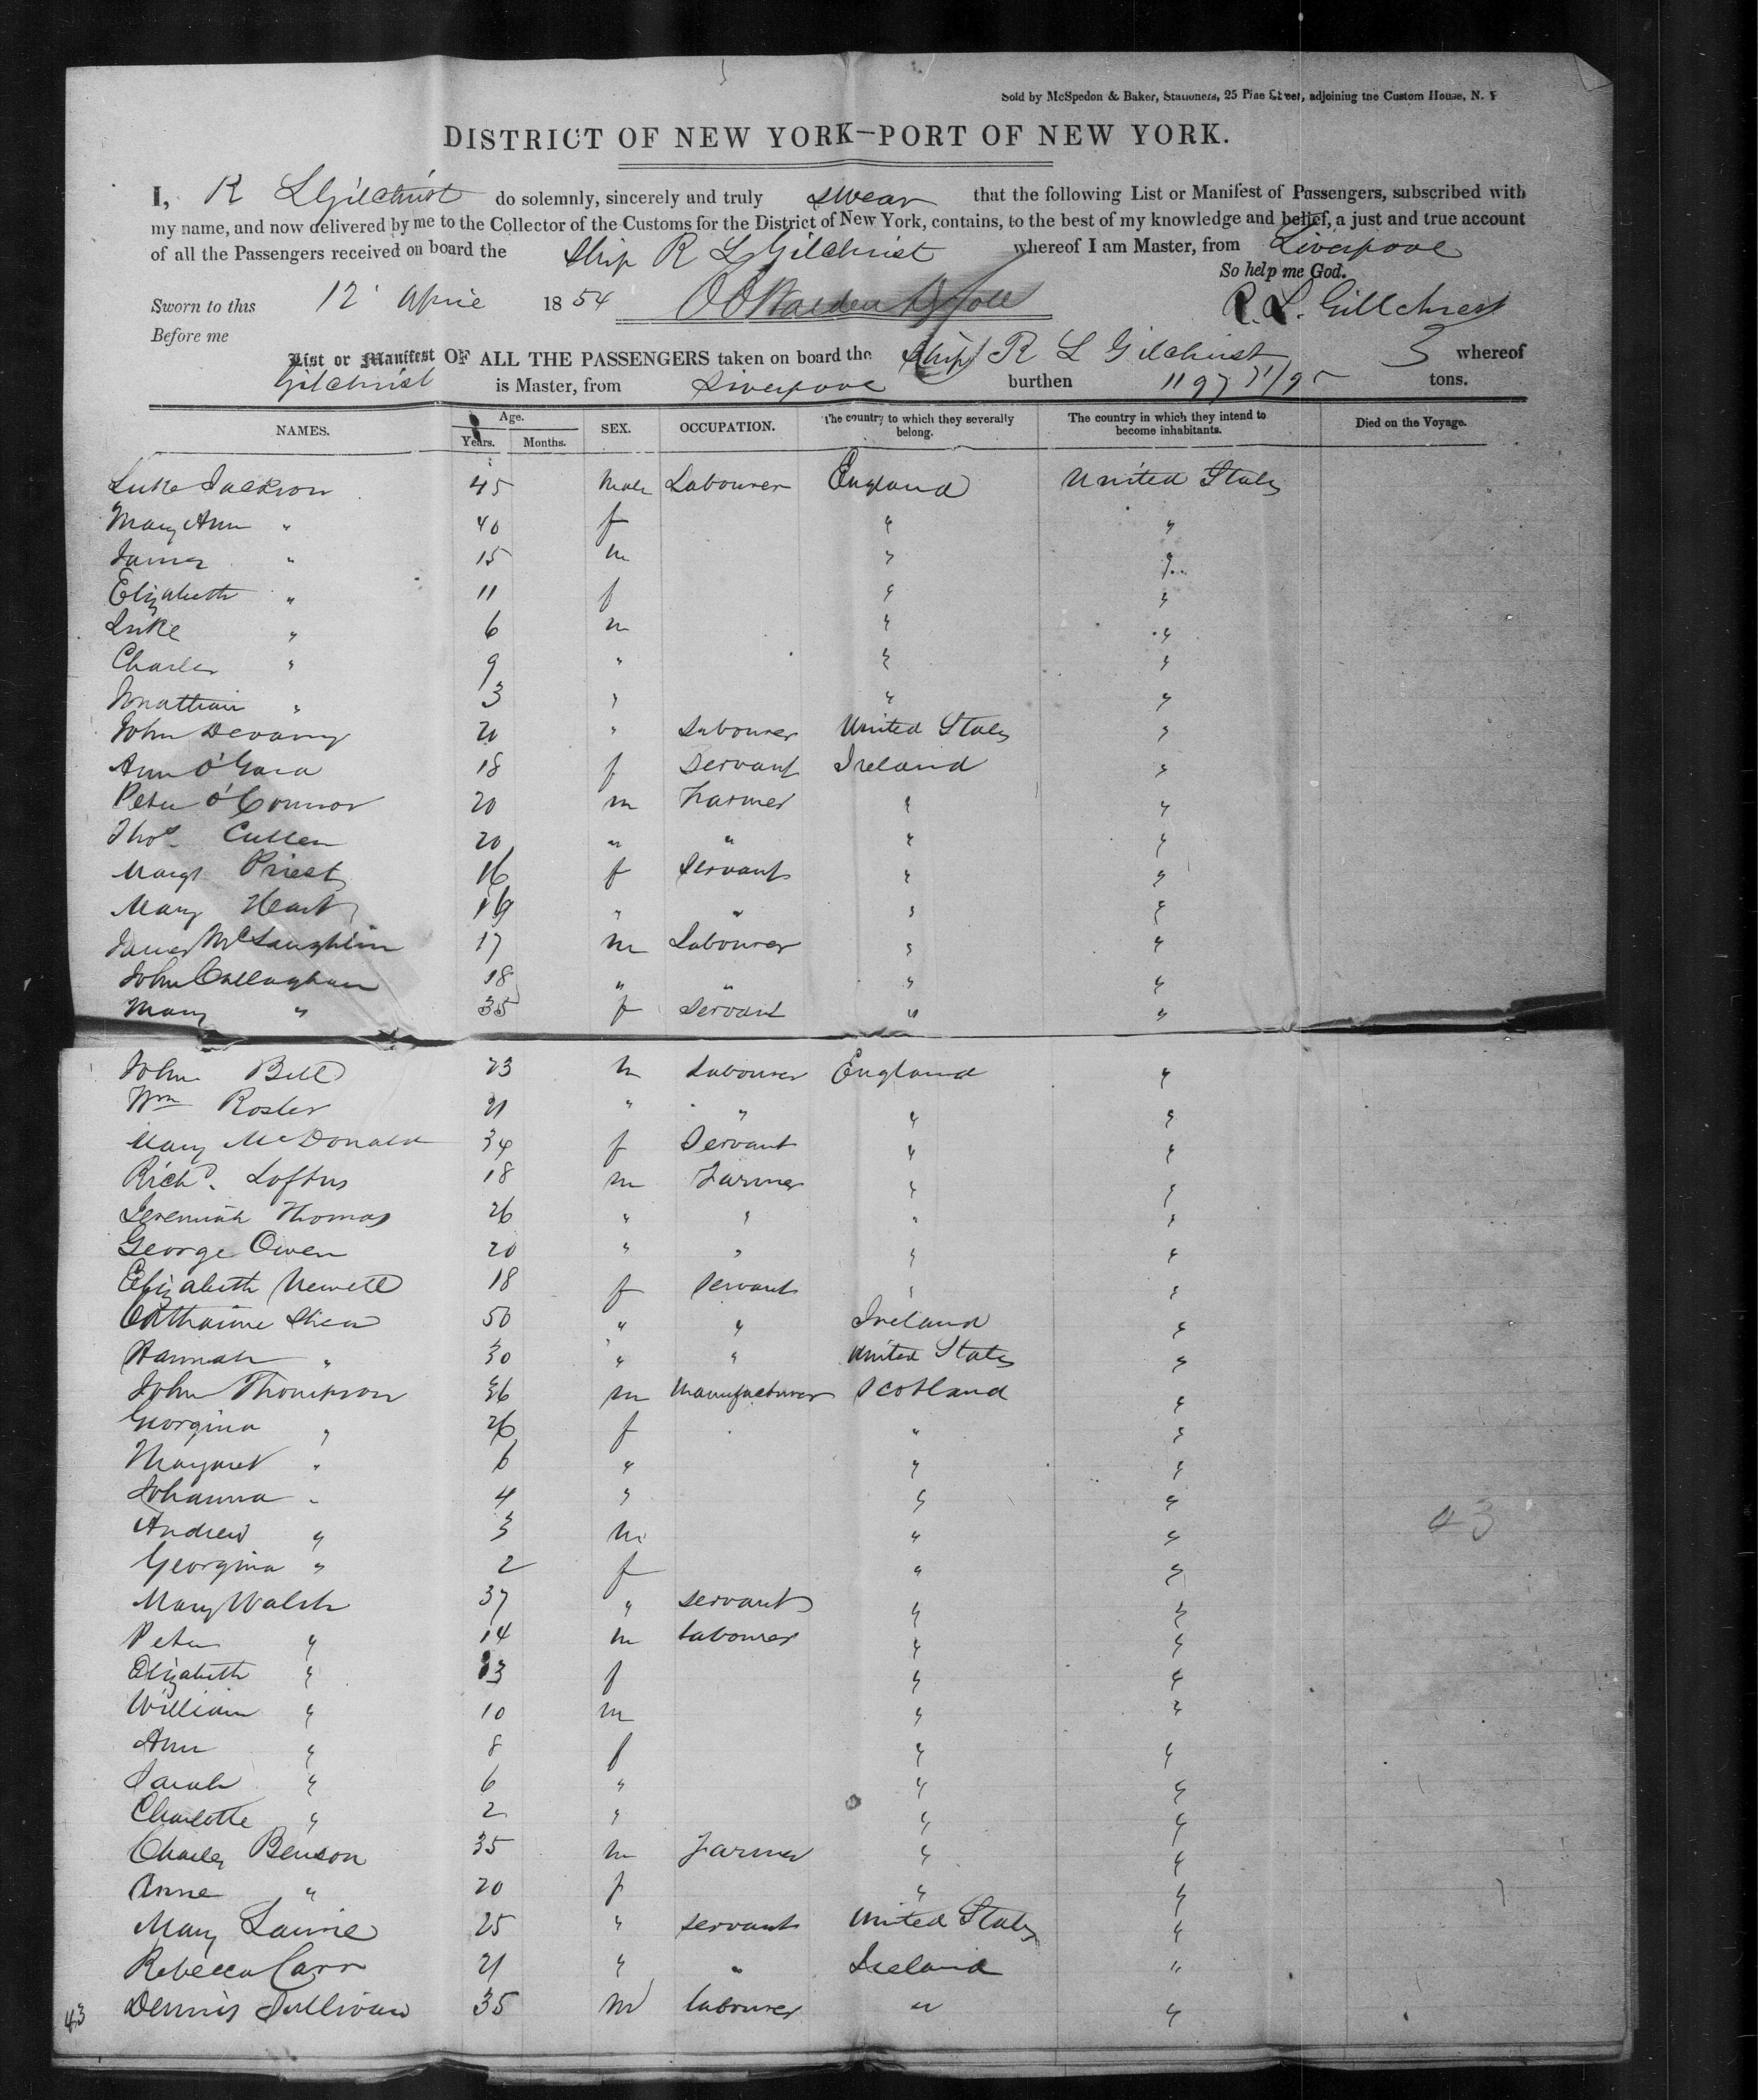 Sold by McSpedon & Baker, Stationers, 25 Pine Street, adjoining the Custom House, N. Y
DISTRICT OF NEW YORK—PORT OF NEW YORK.
I, R L Gilchrist do solemnly, sincerely and truly swear that the following List or Manifest of Passengers, subscribed with
my name, and now delivered by me to the Collector of the Customs for the District of New York, contains, to the best of my knowledge and belief, a just and true account
of all the Passengers received on board the Ship R L Gilchrist whereof I am Master, from Liverpool
So help me God.
Sworn to this 12 April 1854 R. L. Gillchrest
Before me
List or Manifest OF ALL THE PASSENGERS taken on board the Ship R L Gilchrist whereof
Gilchrist is Master, from Liverpool burthen 1197 71/95 tons.
NAMES. Age. Years. Months. SEX. OCCUPATION. The country to which they severally belong. The country in which they intend to become inhabitants. Died on the Voyage.
Luke Jackson 45 Male Labourer England United States
Mary Ann " 40 f " "
James " 15 m " "
Elizabeth " 11 f " "
Luke " 6 m " "
Charles " 9 " " "
Jonathan " 3 " " "
John Devanny 20 " Labourer United States "
Ann O'Gara 18 f Servant Ireland "
Peter O'Connor 20 m Farmer " "
Thos. Cullen 20 " " " "
Margt Priest 16 f Servant " "
Mary Heart 19 " " " "
James McLaughlin 17 m Labourer " "
John Callaghan 18 " " " "
Mary " 35 f Servant " "
John Bell 23 m Labourer England "
Wm Rosler 21 " " " "
Mary McDonald 34 f Servant " "
Richd. Loftus 18 m Farmer " "
Jeremiah Thomas 26 " " " "
George Owen 20 " " " "
Elizabeth Newell 18 f Servant " "
Catharine Shea 50 " " Ireland "
Hannah " 30 " " United States "
John Thompson 36 m Manufacturer Scotland "
Georgina " 26 f " "
Margaret " 6 " " "
Johanna " 4 " " "
Andrew " 3 m " " 43
Georgina " 2 f " "
Mary Walsh 37 " servant " "
Peter " 14 m labourer " "
Elizabeth " 13 f " "
William " 10 m " "
Ann " 8 f " "
Sarah " 6 " " "
Charlotte " 2 " " "
Charles Benson 35 m Farmer " "
Anne " 20 f " "
Mary Lawrie 25 " servant United States "
Rebecca Carr 21 " " Ireland "
43 Dennis Sullivan 35 m labourer " "